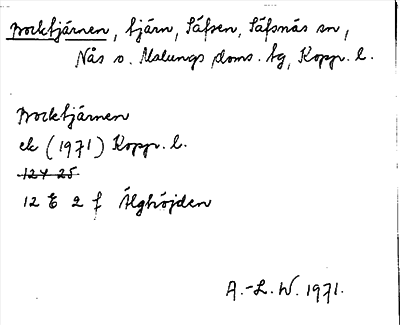 Brocktjärnen, tjärn, Säfsen, Säfsnäs sn,
Nås o. Malungs doms. tg, Kopp. l.
Brocktjärnen
ek (1971) Kopp. l.
12 E 2 f Älghöjden
A.-L. W. 1971.